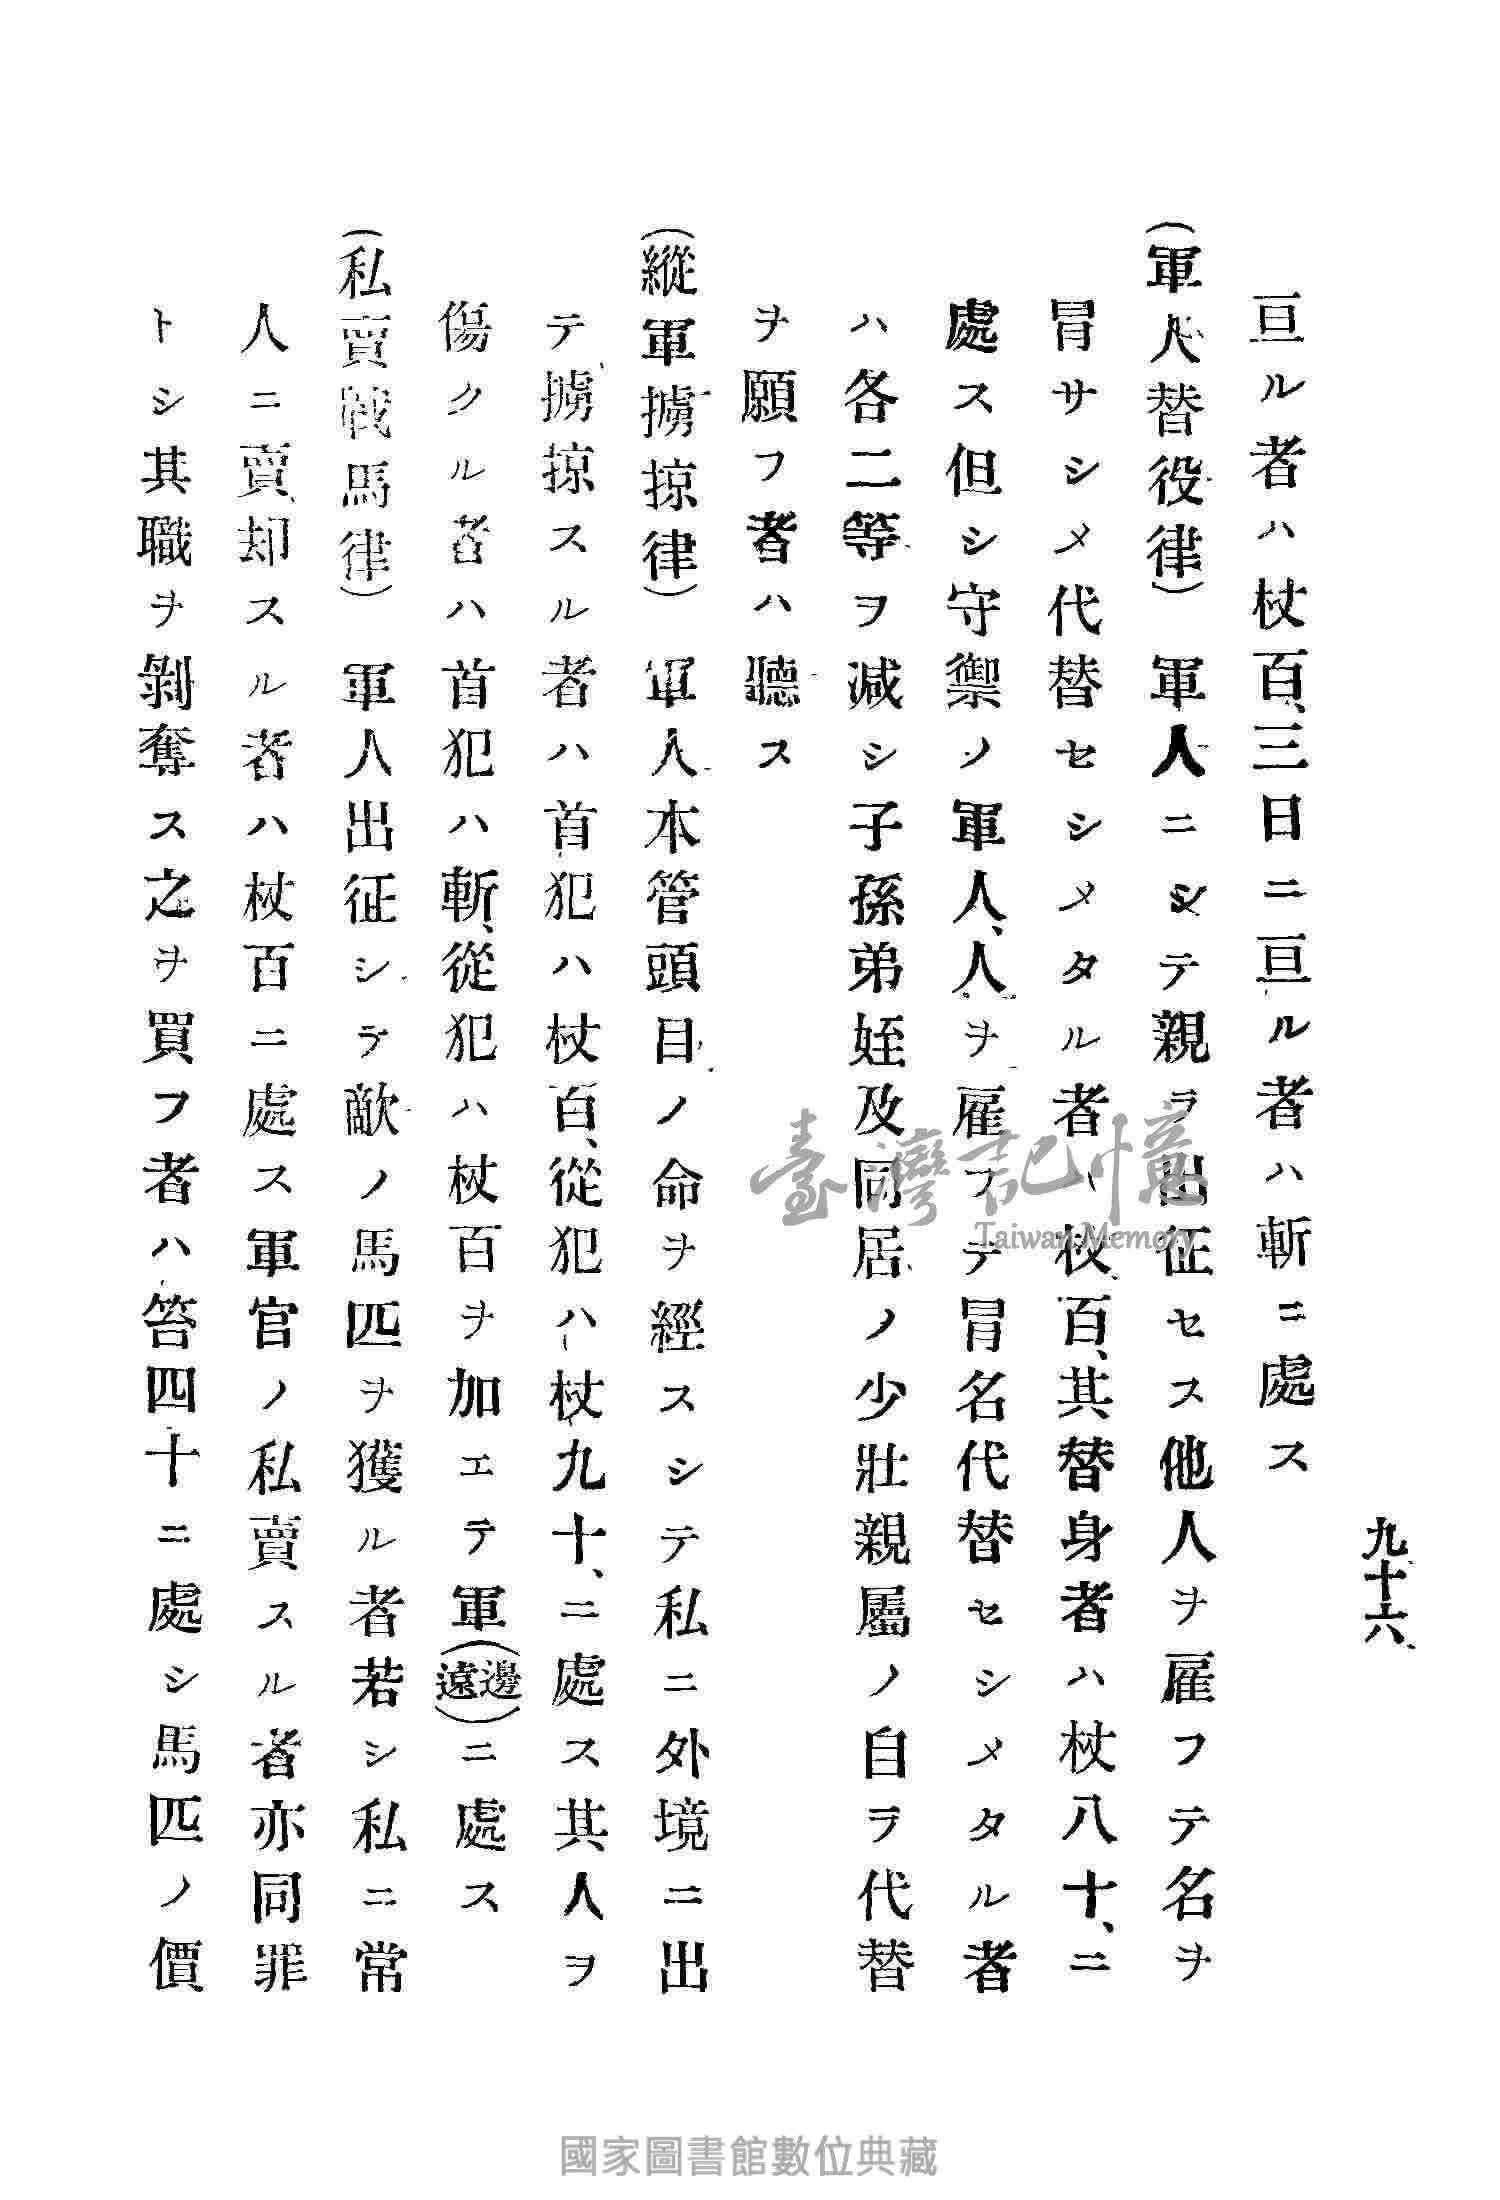 九十六
亘ル者ハ杖百、三日ニ亘ル者ハ斬ニ處ス
(軍人替役律)　軍人ニシテ親ラ出征セス他人ヲ雇フテ名ヲ
冒サシメ代替セシメタル者ハ杖百、其替身者ハ杖八十、ニ
處ス但シ守禦ノ軍人、人ヲ雇フテ冒名代替セシメタル者
ハ各二等ヲ减シ子孫弟姪及同居ノ少壯親屬ノ自ラ代替
ヲ願フ者ハ聽ス
(縱軍擄掠律)　軍人本管頭目ノ命ヲ經スシテ私ニ外境ニ出
テ擄掠スル者ハ首犯ハ杖百、從犯ハ杖九十、ニ處ス其人ヲ
傷クル者ハ首犯ハ斬、從犯ハ杖百ヲ加エテ軍(邊遠)ニ處ス
(私賣戰馬律)　軍人出征シテ敵ノ馬匹ヲ獲ル者若シ私ニ常
人ニ賣却スル者ハ杖百ニ處ス軍官ノ私賣スル者亦同罪
トシ其職ヲ剝奪ス之ヲ買フ者ハ笞四十ニ處シ馬匹ノ價
臺灣記憶
Taiwan Memory
國家圖書館數位典藏